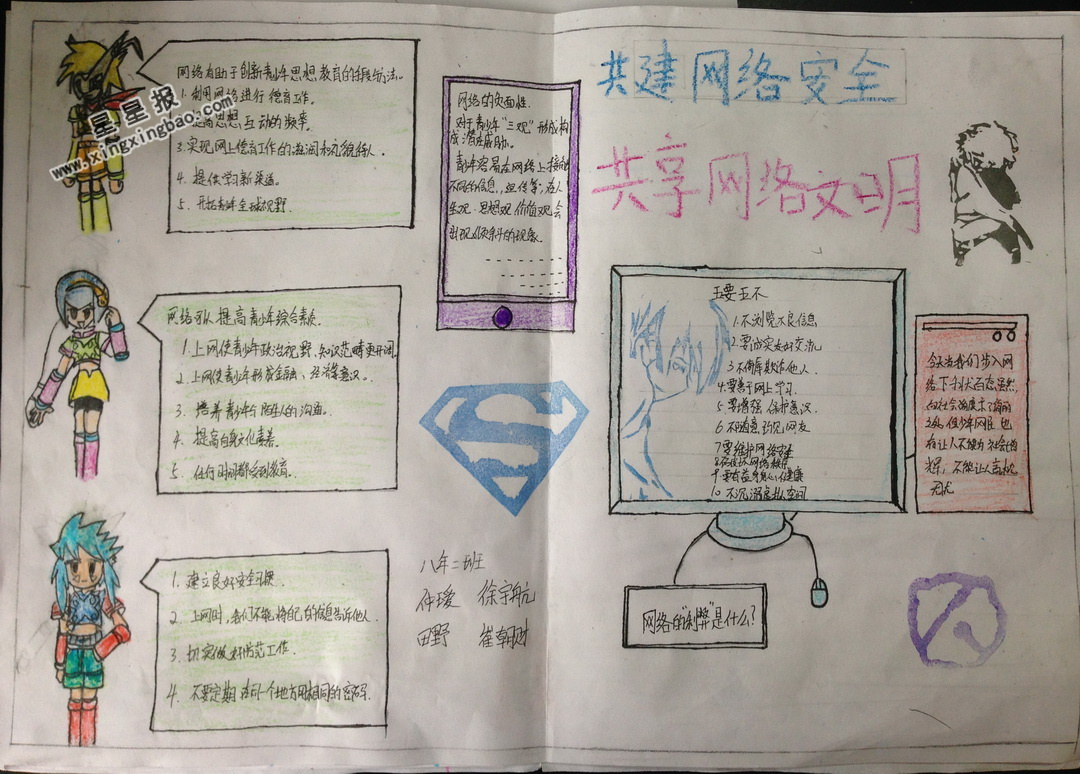 网络有助于创新青少年思想教育的手段与方法。
1. 利用网络进行德育工作。
提高思想互动的频率。
3. 实现网上德育工作的滋润和
4. 提供学习新渠道。
5. 开拓青年全球视野.
星星报
www.xingxingbao.com
网络可以提高青少年综合素质.
1. 上网使青少年政治视野、知识范畴更开阔.
2. 上网使青少年形成金融、经济意识.
3. 培养青少年与陌生人的沟通.
4. 提高自身文化素养.
5. 任何时间都会受到教育.
1. 建立良好安全习惯.
2. 上网时, 我们不能将自己的信息告诉他人.
3. 切实做好防范工作.
4. 不要定期在同一个地方用相同的密码.
网络的负面性.
对于青少年“三观”形成构
成潜在威胁.
青少年容易在网络上接触
不同的信息,
生观、思想观、价值观会
出现倾斜的现象.
八年二班
仵瑷 徐宇航
田野 崔朝
共建网络安全
共享网络文明
五要五不
1. 不浏览不良信息
2. 要诚实友好交流
3. 不侮辱欺诈他人.
4. 要善于网上学习.
5. 要增强保护意识.
6. 不随意约见网友
7. 要维护网络安全
8. 不破坏网络秩序
9. 要有益身心健康
10. 不沉溺虚拟空间
网络的“利弊”是什么?
今天当我们步入网
络
无忧